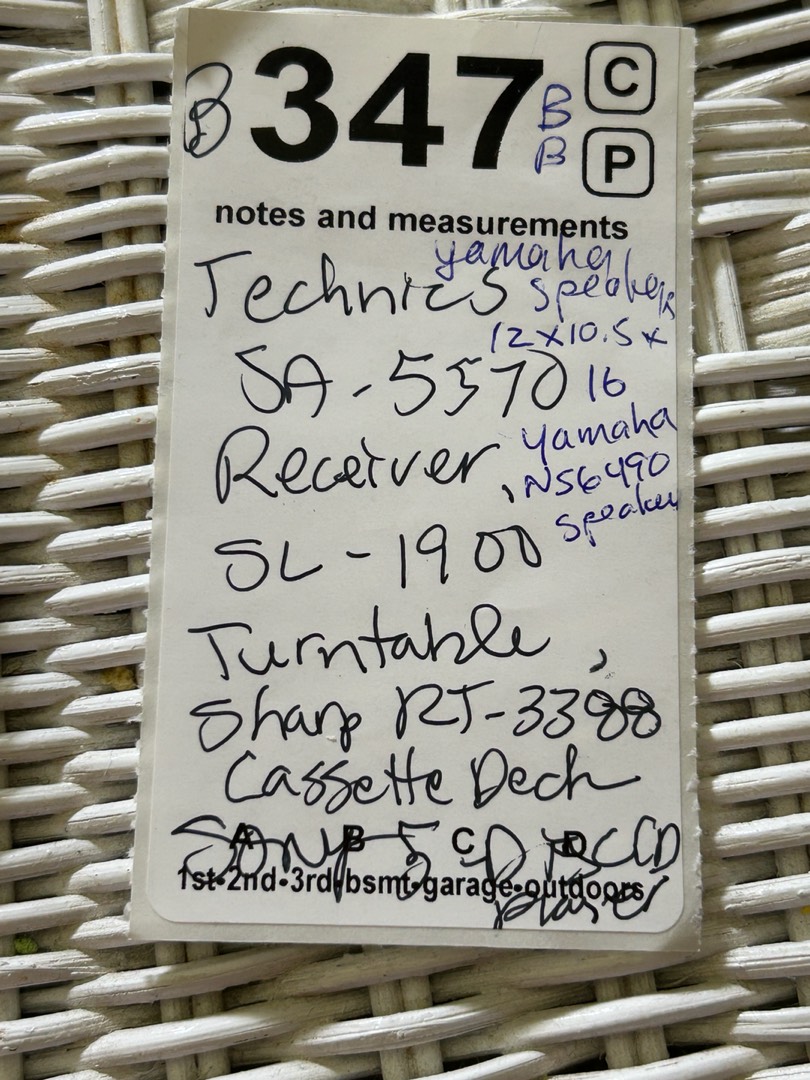 B 347 B C
B P
notes and measurements
yamaha
Technics speakers
12x10.5x
SA-5370 16
Receiver, yamaha
NS6490
speaker
SL-1900
Turntable,
Sharp RT-3388
Cassette Deck
A B C D
SONY 5 DISC CD
1st•2nd•3rd•bsmt•garage•outdoors
player